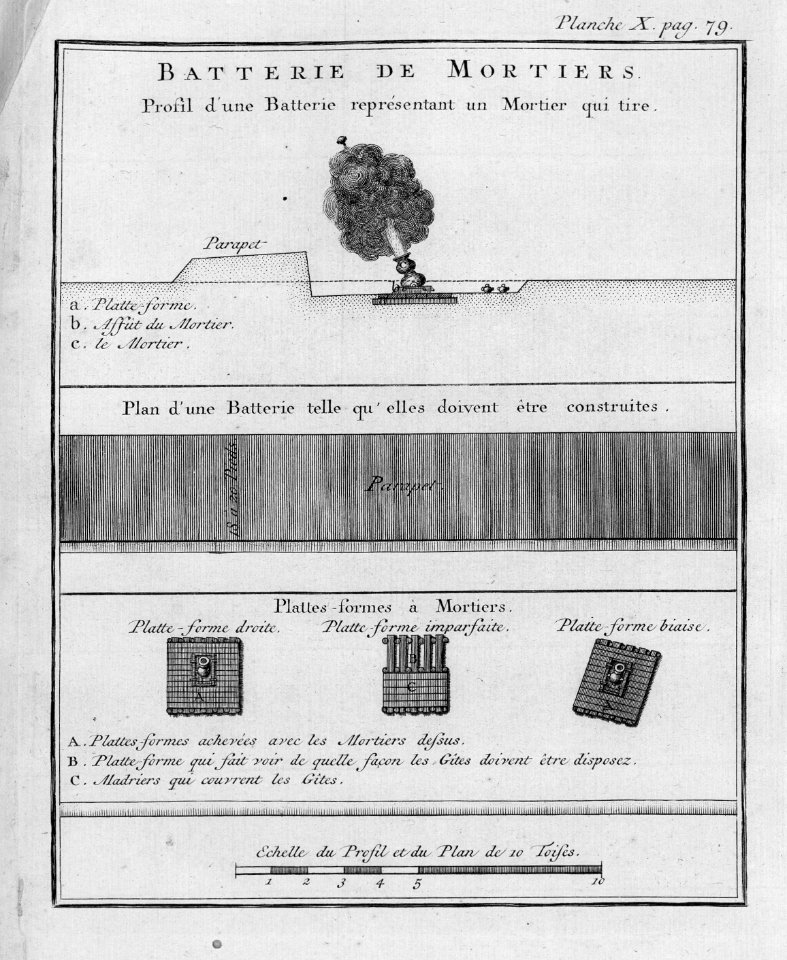 Planche X. pag. 79.
BATTERIE DE MORTIERS.
Profil d'une Batterie représentant un Mortier qui tire.
Parapet
a. Platte-forme.
b. Affût du Mortier.
c. le Mortier.
Plan d'une Batterie telle qu'elles doivent être construites.
18 a 20 Pieds.
Parapet.
Plattes-formes à Mortiers.
Platte-forme droite. Platte forme imparfaite. Platte-forme biaise.
A B C A
A. Plattes formes achevées avec les Mortiers deſsus.
B. Platte-forme qui fait voir de quelle façon les Gîtes doivent être disposez.
C. Madriers qui couvrent les Gîtes.
Echelle du Profil et du Plan de 10 Toiſes.
1 2 3 4 5 10